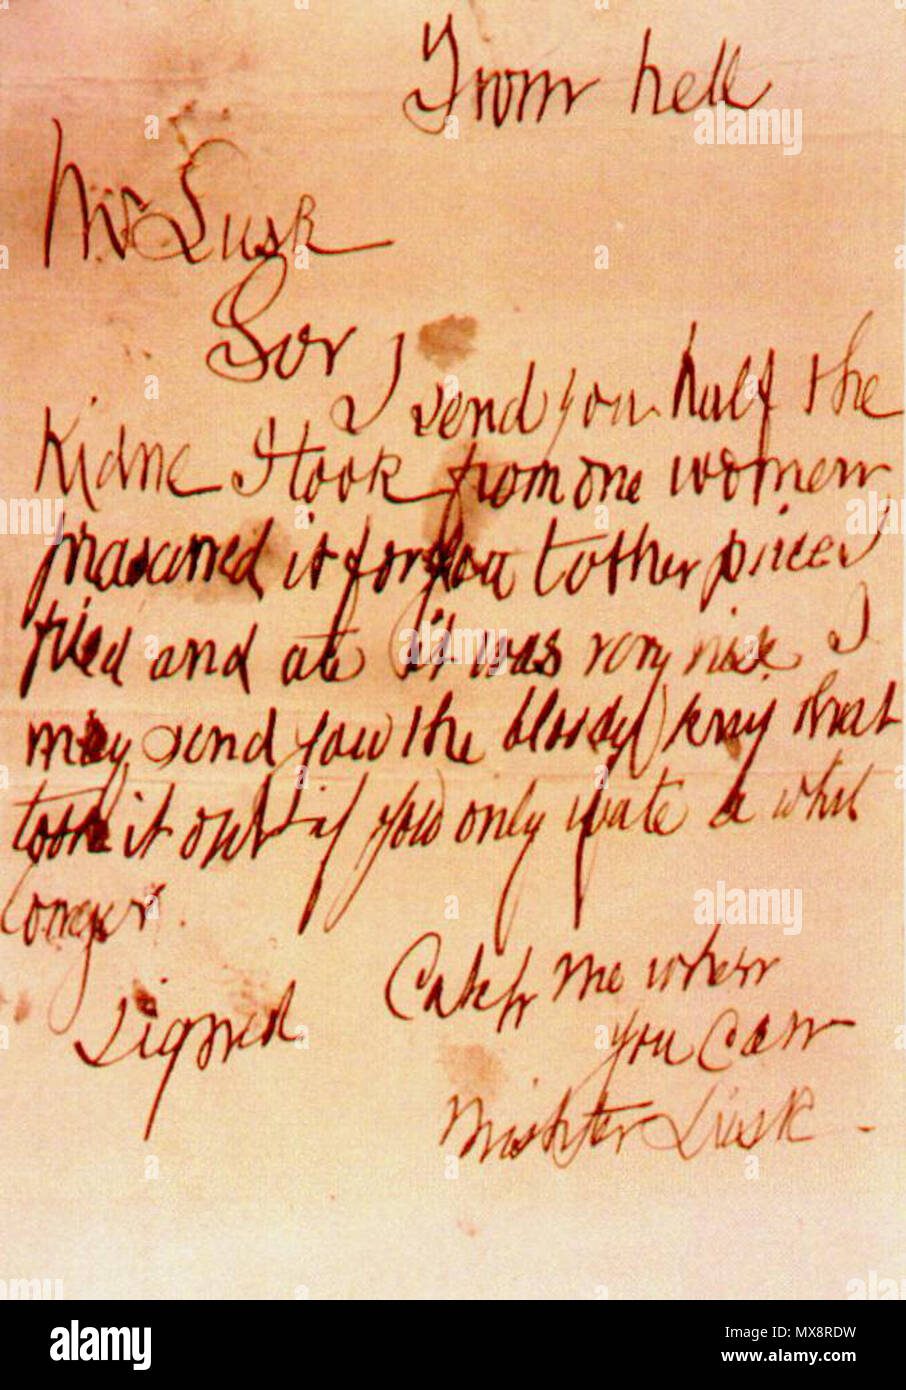 From hell
Mr Lusk
Sor
I send you half the
Kidne I took from one women
prasarved it for you tother piece I
fried and ate it was very nise I
may send you the bloody knif that
took it out if you only wate a whil
longer.
signed
Catch me when
you Can
Mishter Lusk
alamy
a
alamy
Image ID: MX8RDW
www.alamy.com